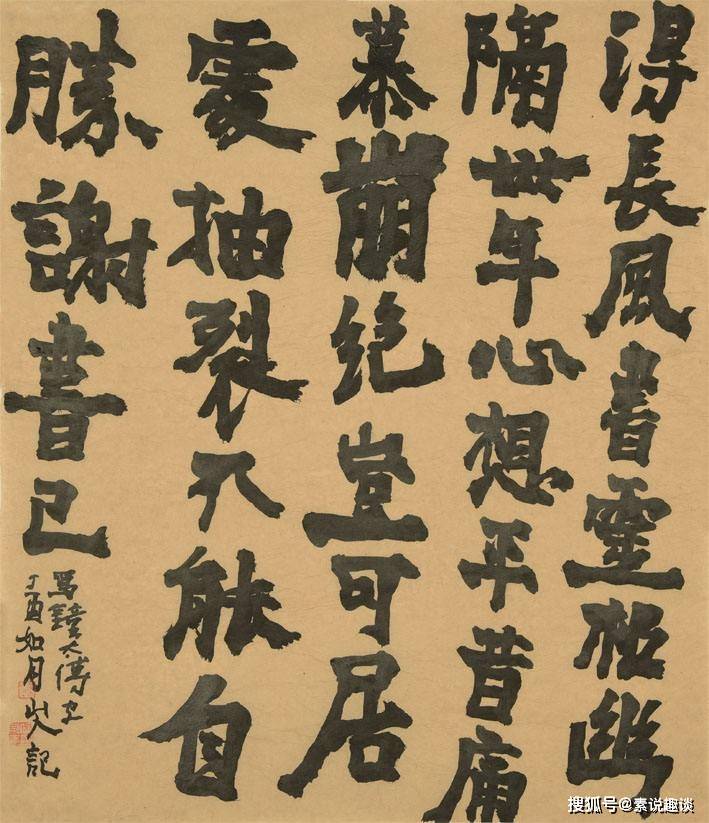 得長風書靈柩幽
隔卅年心想平昔痛
慕崩绝豈可居
處抽裂不能自
勝謝書已
太傅
丁酉如月山人記
搜狐号@素说趣谈